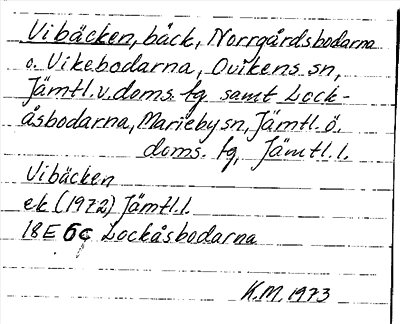 Vibäcken, bäck, Norrgårdsbodarna
o. Vikebodarna, Ovikens sn,
Jämtl. v. doms. fg samt Lock-
åsbodarna, Marieby sn, Jämtl. ö.
doms. fg, Jämtl. l.
Vibäcken
ek (1972) Jämtl. l.
18E 6c Lockåsbodarna
K.M. 1973